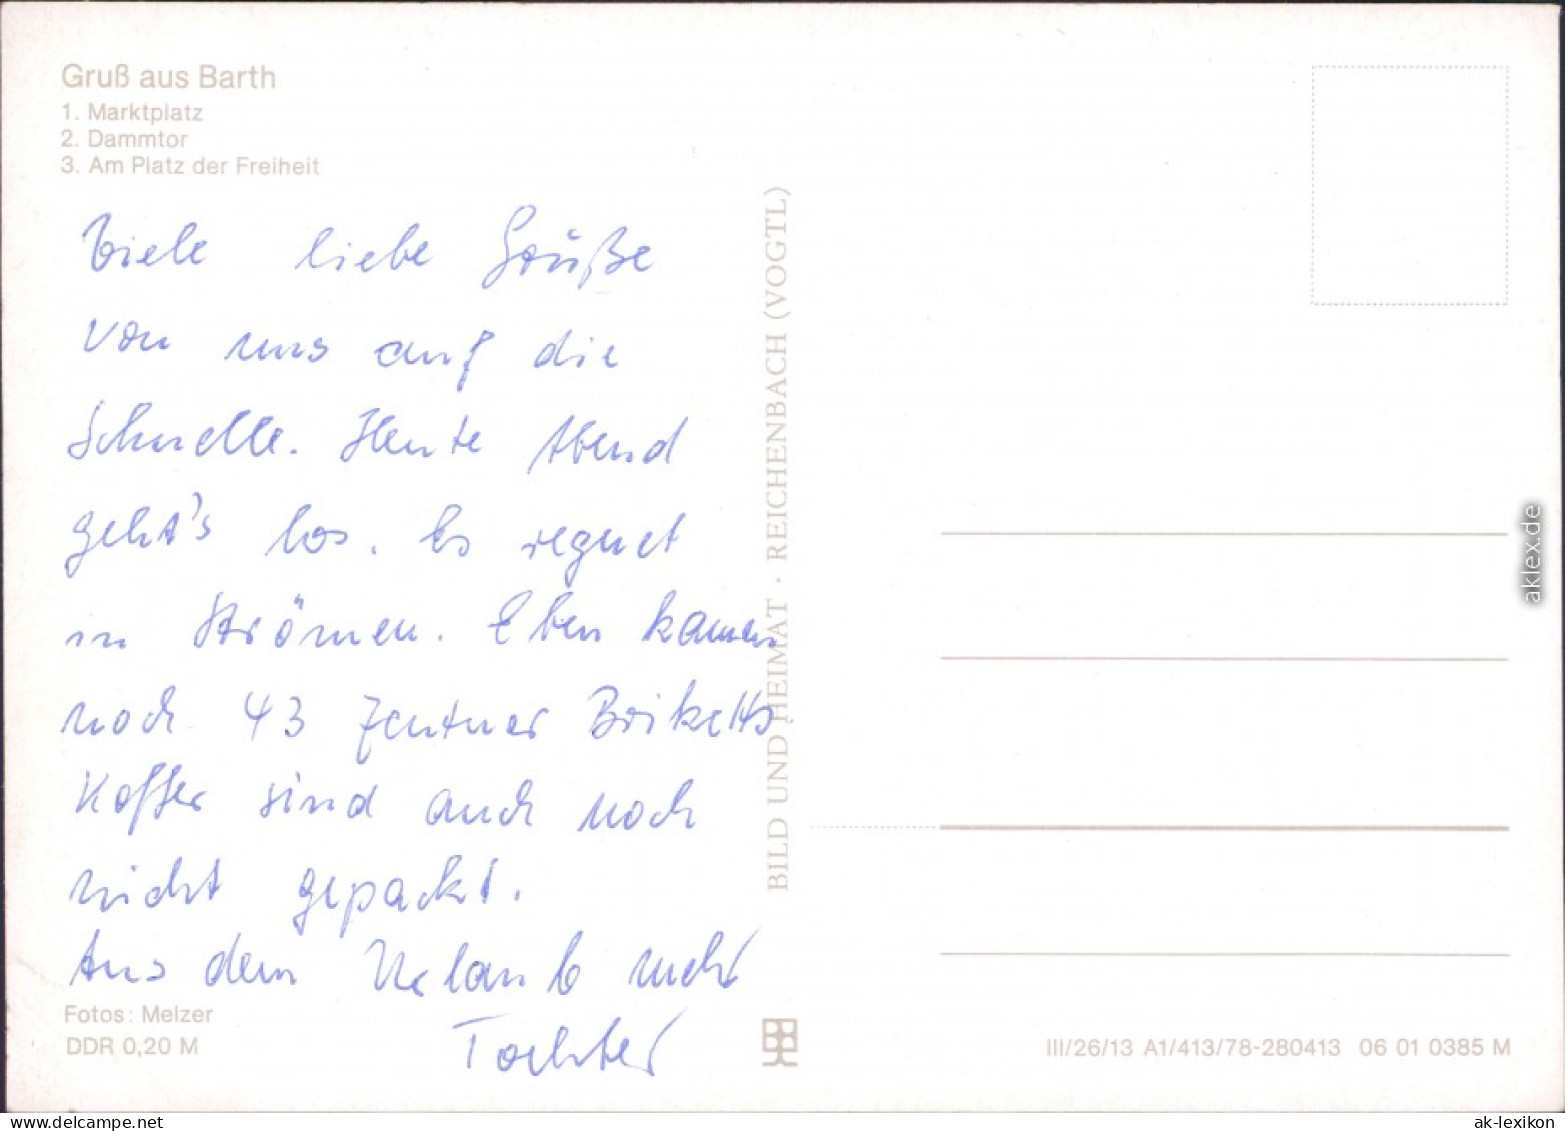 Gruß aus Barth
1. Marktplatz
2. Dammtor
3. Am Platz der Freiheit
Viele liebe Grüße
von uns auf die
Schnelle. Heute Abend
geht's los. Es regnet
in Strömen. Eben kamen
noch 43 Zentner Briketts
Koffer sind auch noch
nicht gepackt.
Aus dem Urlaub mehr
Tochter
Fotos: Melzer
DDR 0,20 M
BILD UND HEIMAT · REICHENBACH (VOGTL)
III/26/13 A1/413/78-280413 06 01 0385 M
aklex.de
www.delcampe.net
ak-lexikon